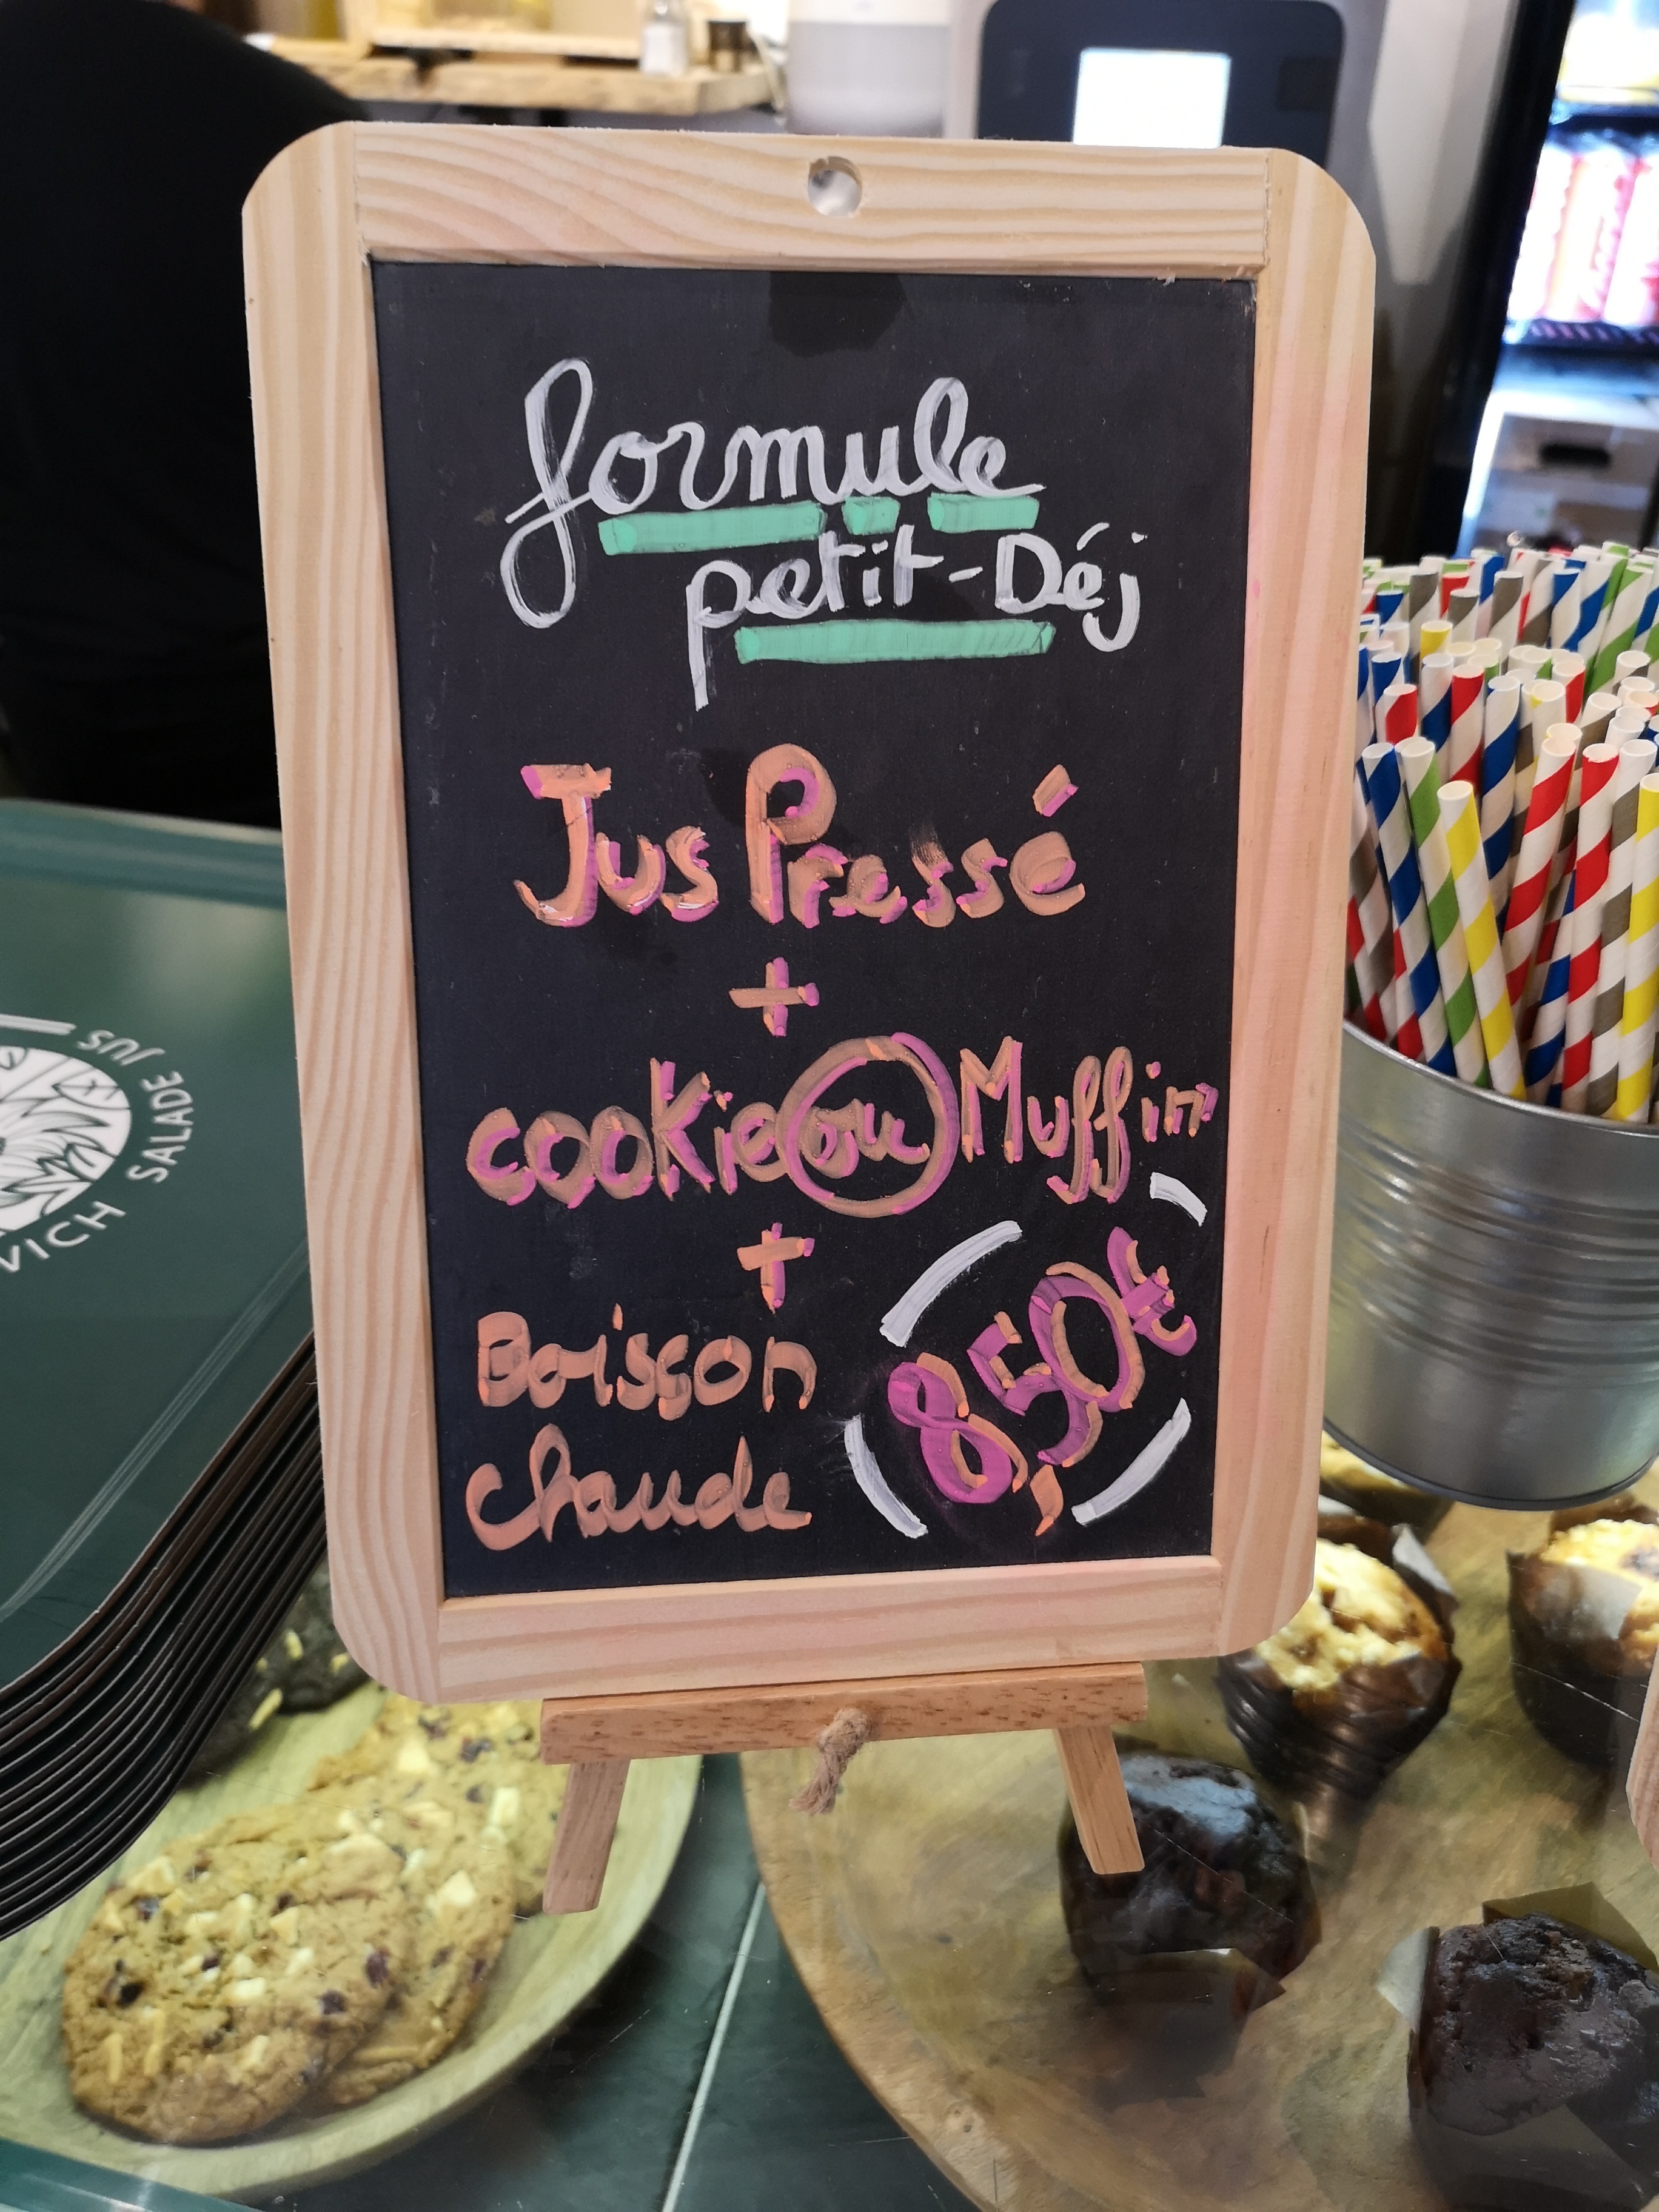 formule
petit-Déj
Jus Pressé
+
cookie ou Muffin
+
Boisson
chaude
8,50€
JUS
SALADE